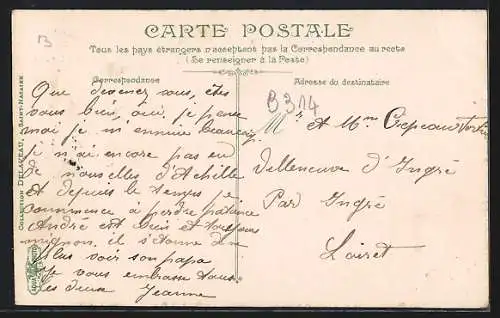 B
CARTE POSTALE
Tous les pays étrangers n'acceptent pas la Correspondance au recto
(Se renseigner à la Poste)
Correspondance
Que devenez vous, êtes
vous bien, oui, je pense
moi je m ennuie beaucoup
je n'ai encore pas eu
de nouvelles d'Achille
et depuis le temps je
commence à perdre patience
André est bien et toujours
mignon, il s'étonne de
plus voir son papa
Je vous embrasse tous
les deux Jeanne
Adresse du destinataire
B 314
Mr et Mme Crepeau
Villeneuve d'Ingré
Par Ingré
Loiret
COLLECTION DELAVEAU, SAINT-NAZAIRE